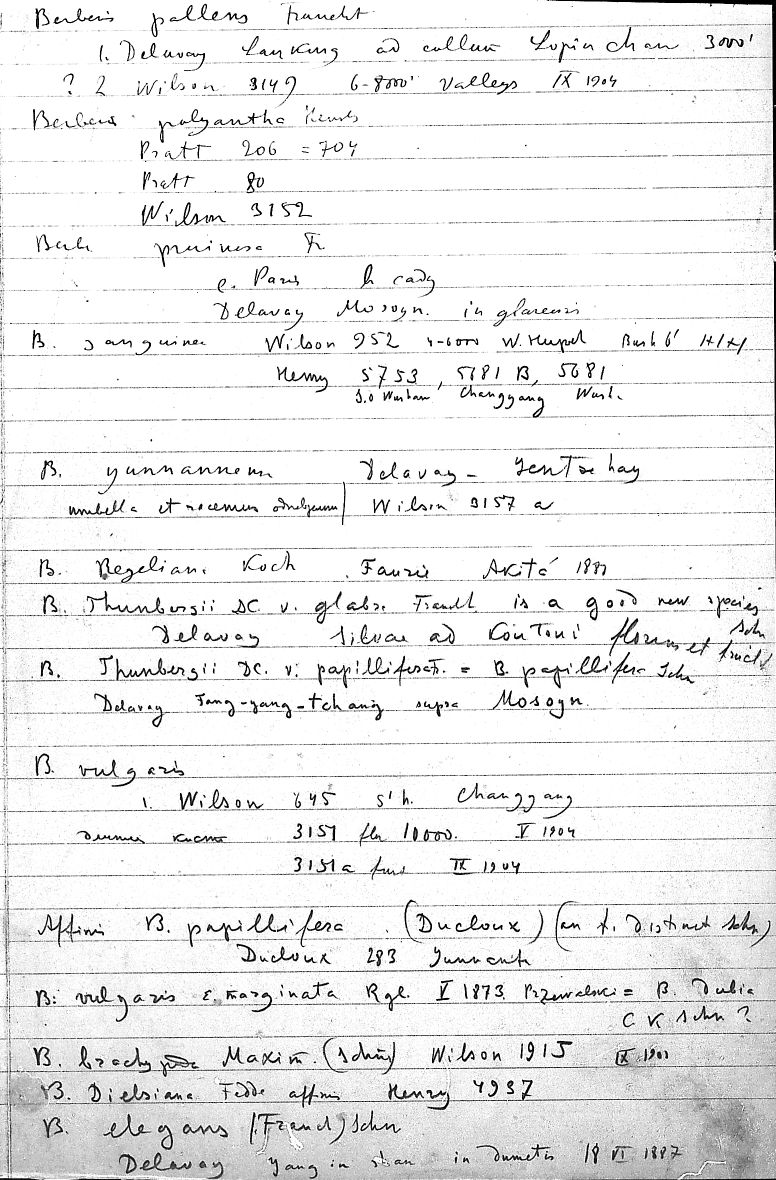 Berberis pallens Franchet
1. Delavay Lankung ad collum Lopin chan 3000'
? 2 Wilson 3149 6-8000' Valleys IX 1904
Berberis polyantha Hemsl
Pratt 206 = 704
Pratt 80
Wilson 3152
Berb. pruinosa Fr.
e. Paris
Delavay Mosoyn. in
B. sanguinea Wilson 952 4-6000 W. Hupeh Bush 6'
Henry 5753, 5681 B, 5681
S.o Wushan Changyang Wush.
B. yunnanensis Delavay - Yentze hay
umbella et racemus Wilson 3157 a
B. Regeliana Koch Faurie Akita
B. Thunbergii DC. v. glabra Franch is a good new species Schn
Delavay Silvae ad Koutoui florum et fruct
B. Thunbergii DC. v. papillifera Fr. = B. papillifera Schn
Delavay Fang-yang-tchang supra Mosoyn.
B. vulgaris
1. Wilson 645 5' h. Changyang
3151 flr 10000. V 1904
3151a IX 1904
Affinis B. papillifera. (Ducloux) (an f. distinct Schn)
Ducloux 283
B: vulgaris ε. marginata Rgl. V 1873. Przewalski = B. dubia
C K Schn ?
B. Maxim. (Schn) Wilson 1915 IX
B. Dielsiana Fedde affinis Henry 4937
B. elegans (Franch) Schn
Delavay Yang in shan in dumetis 18 VI 1887